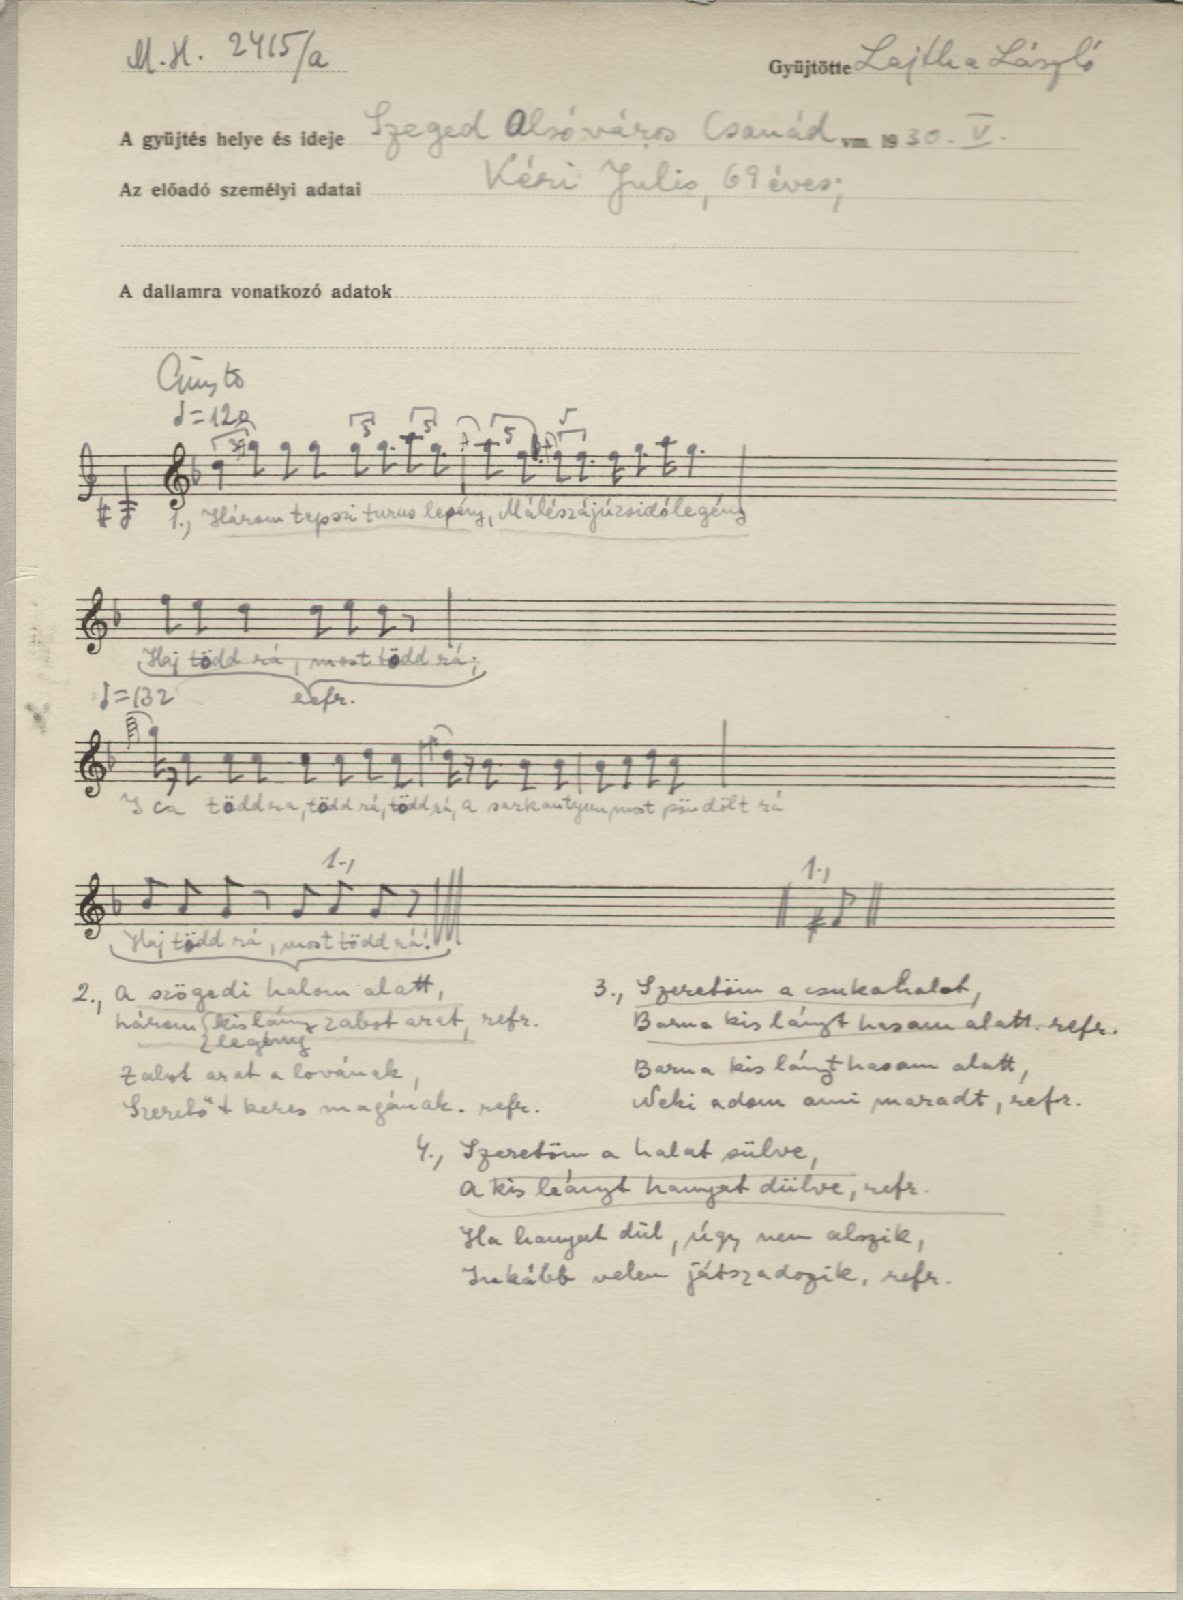 M.H. 2415/a
Gyüjtötte Lajtha László
A gyüjtés helye és ideje Szeged Alsóváros Csanád vm. 1930. V.
Az előadó személyi adatai Kéri Julis, 69 éves;
A dallamra vonatkozó adatok
Giusto
♩=120
1., Három tepszi turus lepény, Málészájúzsidólegény
Haj tödd rá, most tödd rá;
refr.
♩=132
Ica tödd rá, tödd rá, tödd rá, a sarkantyum most pöndölt rá
1.,
1.,
Haj tödd rá, most tödd rá!
2., A szögedi halom alatt,
három kislány zabot arat, refr.
legény
Zabot arat a lovának,
Szeretőt keres magának. refr.
3., Szeretöm a csukahalat,
Barna kis lányt hasam alatt. refr.
Barna kis lányt hasam alatt,
Neki adom ami maradt, refr.
4., Szeretöm a halat sülve,
A kis leányt hanyat dülve, refr.
Ha hanyat dül, úgy nem alszik,
Inkább velem játszadozik, refr.